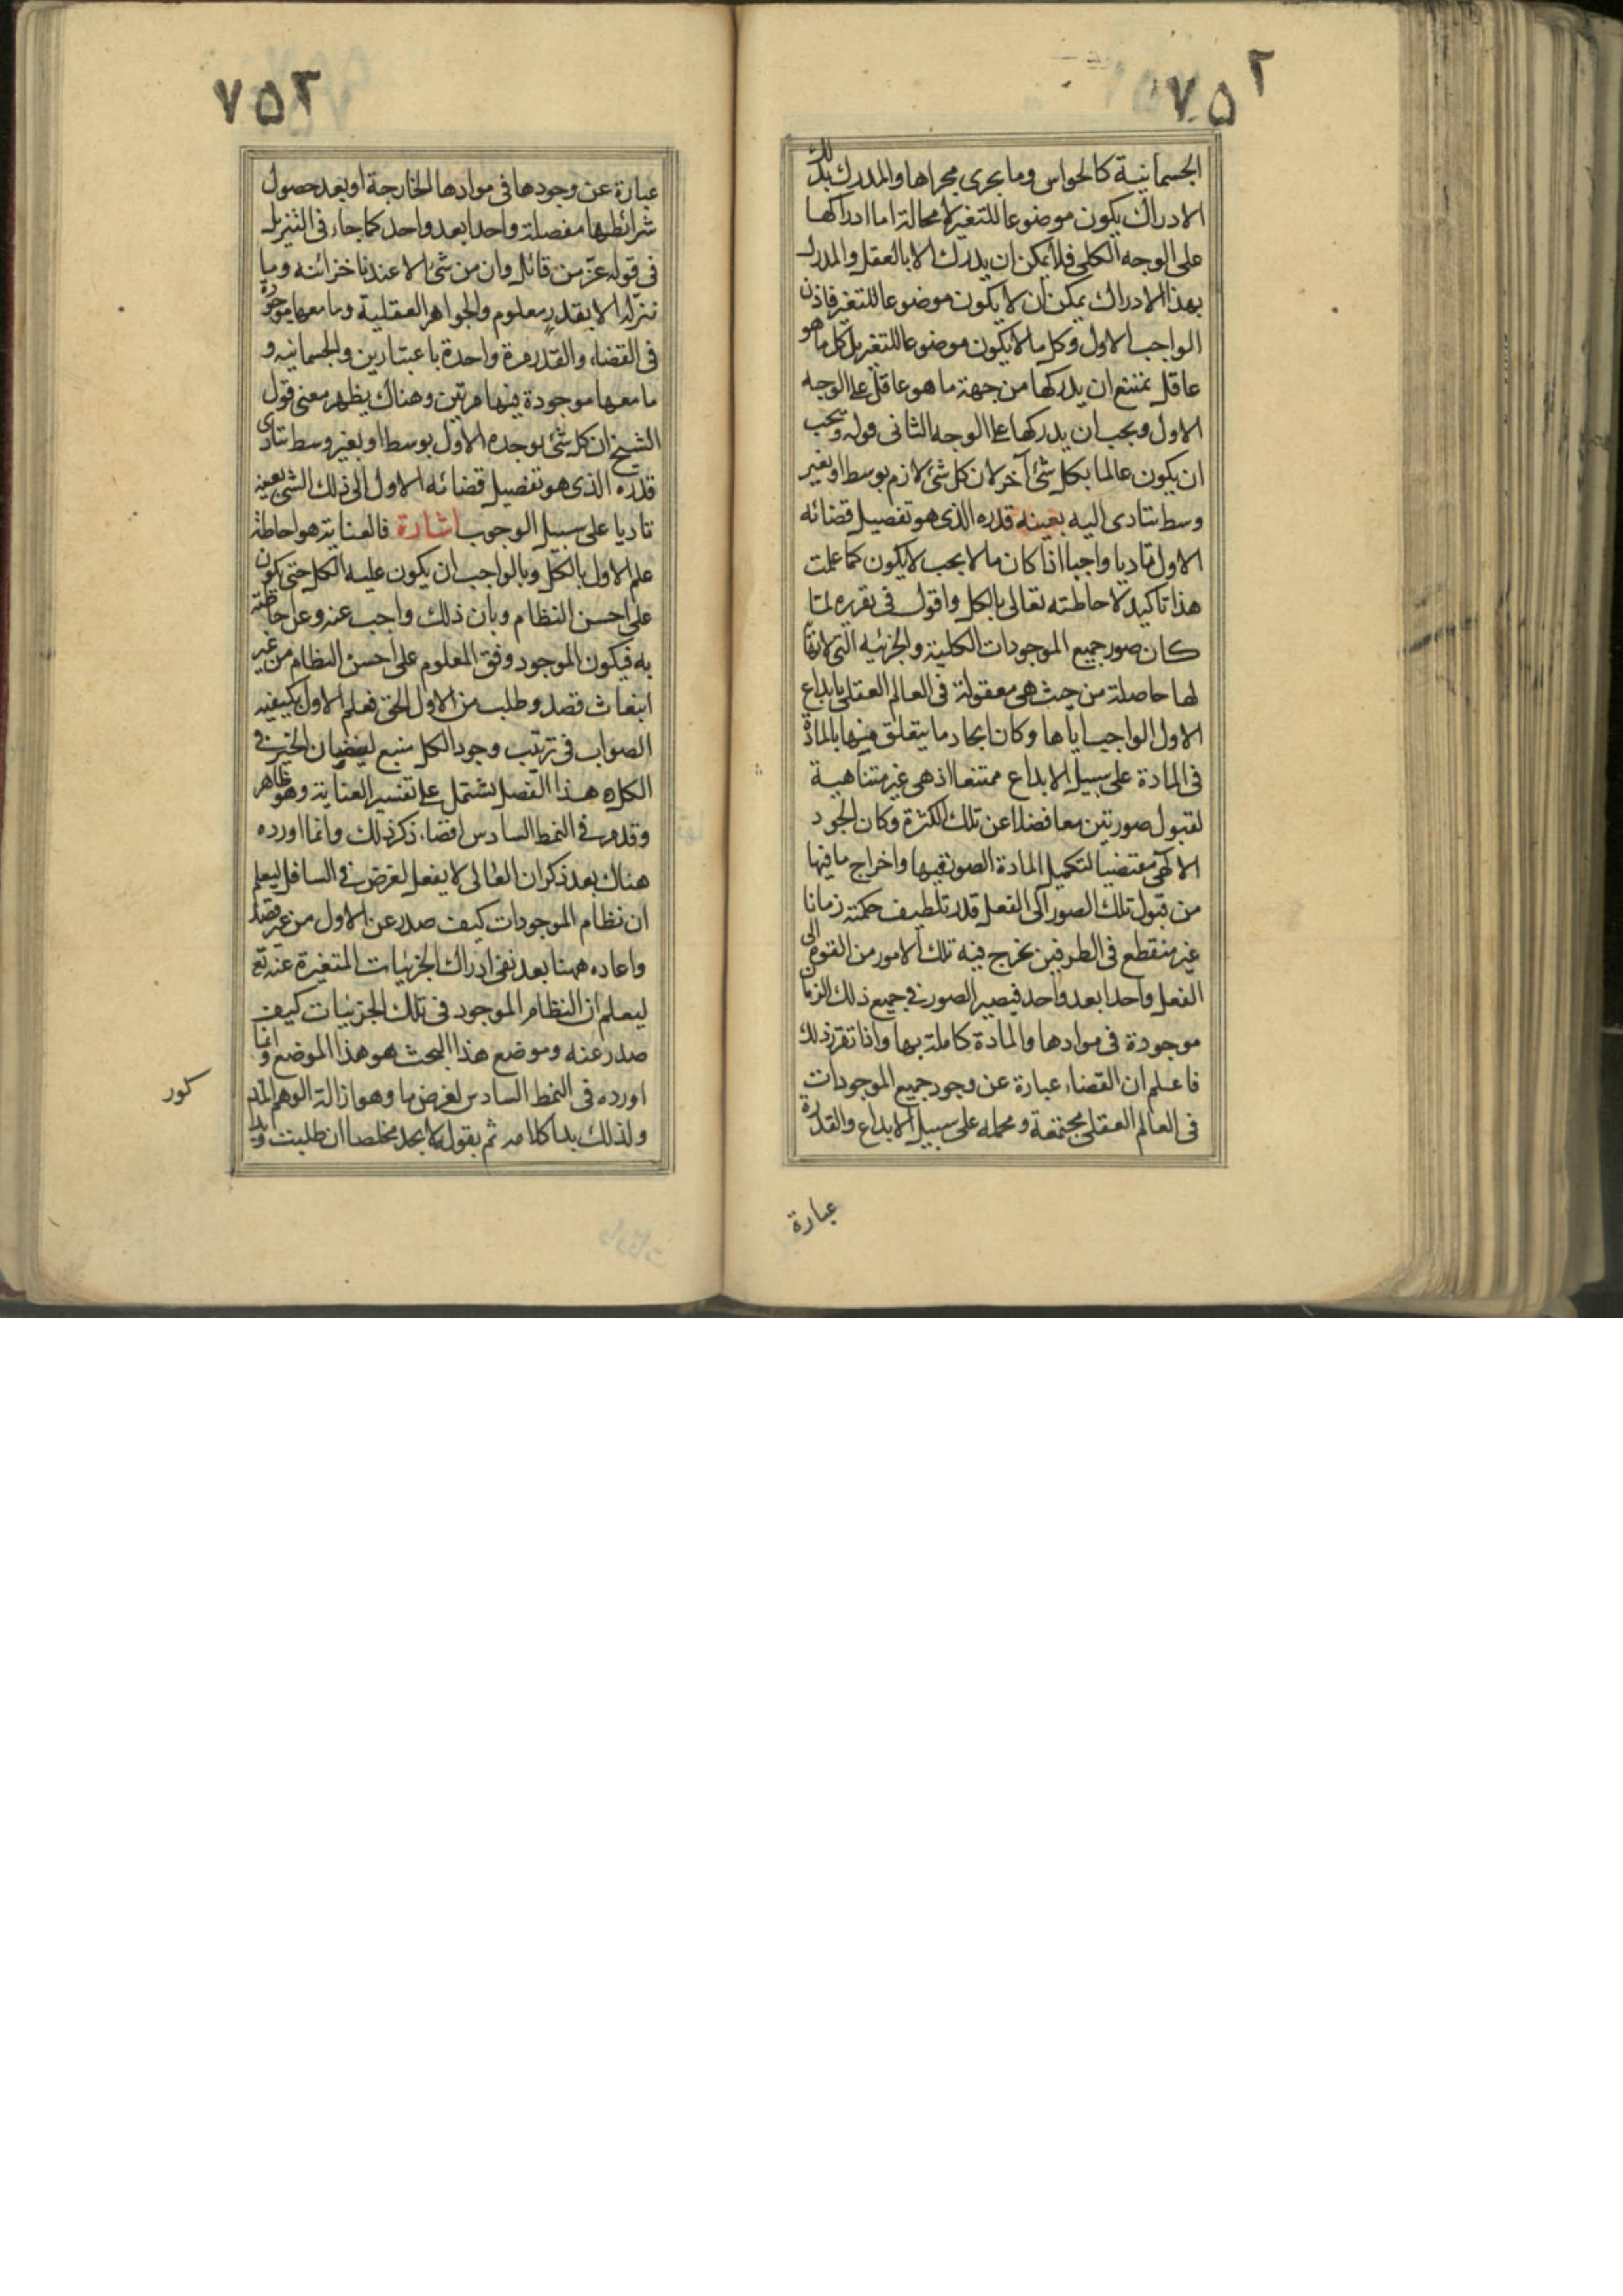 ٧٥٢
الجسمانية كالحواس وما يجري مجراها والمدرك بذلك
الادراك يكون موضوعا للتغير لا محالة اما ادراكها
على الوجه الكلي فلا يمكن ان يدرك الا بالعقل والمدرك
بهذا الادراك يمكن ان لا يكون موضوعا للتغير فاذن
الواجب الاول وكل ما لا يكون موضوعا للتغير بل كل ما هو
عاقل يمتنع ان يدركها من جهة ما هو عاقل على الوجه
الاول ويجب ان يدركها على الوجه الثاني قوله ويجب
ان يكون عالما بكل شئ آخر لان كل شئ لازم بوسط او بغير
وسط يتادى اليه بعينه قدره الذي هو تفصيل قضائه
الاول تاديا واجبا اذا كان ما لا يجب لا يكون كما علمت
هذا تاكيد لاحاطته تعالى بالكل واقول في تقريره لما
كان صور جميع الموجودات الكلية والجزئيه التي لا نهاية
لها حاصلة من حيث هي معقولة في العالم العقلي بابداع
الاول الواجب اياها وكان ايجاد ما يتعلق منها بالمادة
في المادة على سبيل الابداع ممتنعا اذ هي غير متناهية
لقبول صورتين معا فضلا عن تلك الكثرة وكان الجود
الالهي مقتضيا لتكميل المادة الصور فيها واخراج ما فيها
من قبول تلك الصور الى الفعل قدر تلطيف حكمته زمانا
غير منقطع في الطرفين يخرج فيه تلك الامور من القوة الى
الفعل واحدا بعد واحد فيصير الصور في جميع ذلك الزمان
موجودة في موادها والمادة كاملة بها واذا تقرر ذلك
فاعلم ان القضاء عبارة عن وجود جميع الموجودات
في العالم العقلي مجتمعة ومجمله على سبيل الابداع والقدر
عبارة
٧٥٣
عبارة عن وجودها في موادها الخارجة او بعد حصول
شرائطها مفصلة واحدا بعد واحد كما جاء في التنزيل
في قوله عز من قائل وان من شئ الا عندنا خزائنه وما
ننزله الا بقدر معلوم والجواهر العقلية وما معها موجودة
في القضاء والقدر مرة واحدة باعتبارين والجسمانيه و
ما معها موجودة فيهما مرتين وهناك يظهر معنى قول
الشيخ ان كل شئ يوجده الاول بوسط او بغير وسط يتادى
قدره الذي هو تفصيل قضائه الاول الى ذلك الشئ بعينه
تاديا على سبيل الوجوب اشارة فالعناية هو احاطة
علم الاول بالكل وبالواجب ان يكون عليه الكل حتى يكون
على احسن النظام وبان ذلك واجب عنه وعن احاطته
به فيكون الموجود وفق المعلوم على احسن النظام من غير
انبعاث قصد وطلب من الاول الحق فعلم الاول بكيفيه
الصواب في ترتيب وجود الكل منبع لفيضان الخير في
الكل ه هذا الفصل يشتمل على تفسير العناية وهو ظاهر
وقد مر في النمط السادس اقضاء ذكر ذلك وانما اورده
هناك بعد ذكر ان العالى لا يفعل لغرض في السافل ليعلم
ان نظام الموجودات كيف صدر عن الاول من غير قصد
واعاده ههنا بعد نفى ادراك الجزئيات المتغيرة عنه تع
ليعلم ان النظام الموجود في تلك الجزئيات كيف
صدر عنه وموضع هذا البحث هو هذا الموضع وانما
اورده في النمط السادس لغرض ما وهو ازالة الوهم المذ
كور
ولذلك بدا كلامه ثم بقوله لا تجد مخلصا ان طلبت